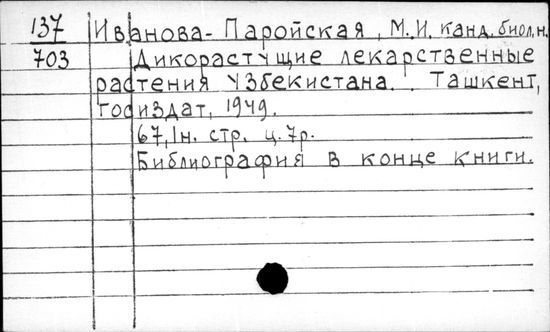 137 Иванова-Паройская, М.И. канд. биол. н.
703 Дикорастущие лекарственные
растения Узбекистана. Ташкент,
Госиздат, 1949.
67,1н. стр. ц. 7р.
Библиография в конце книги.